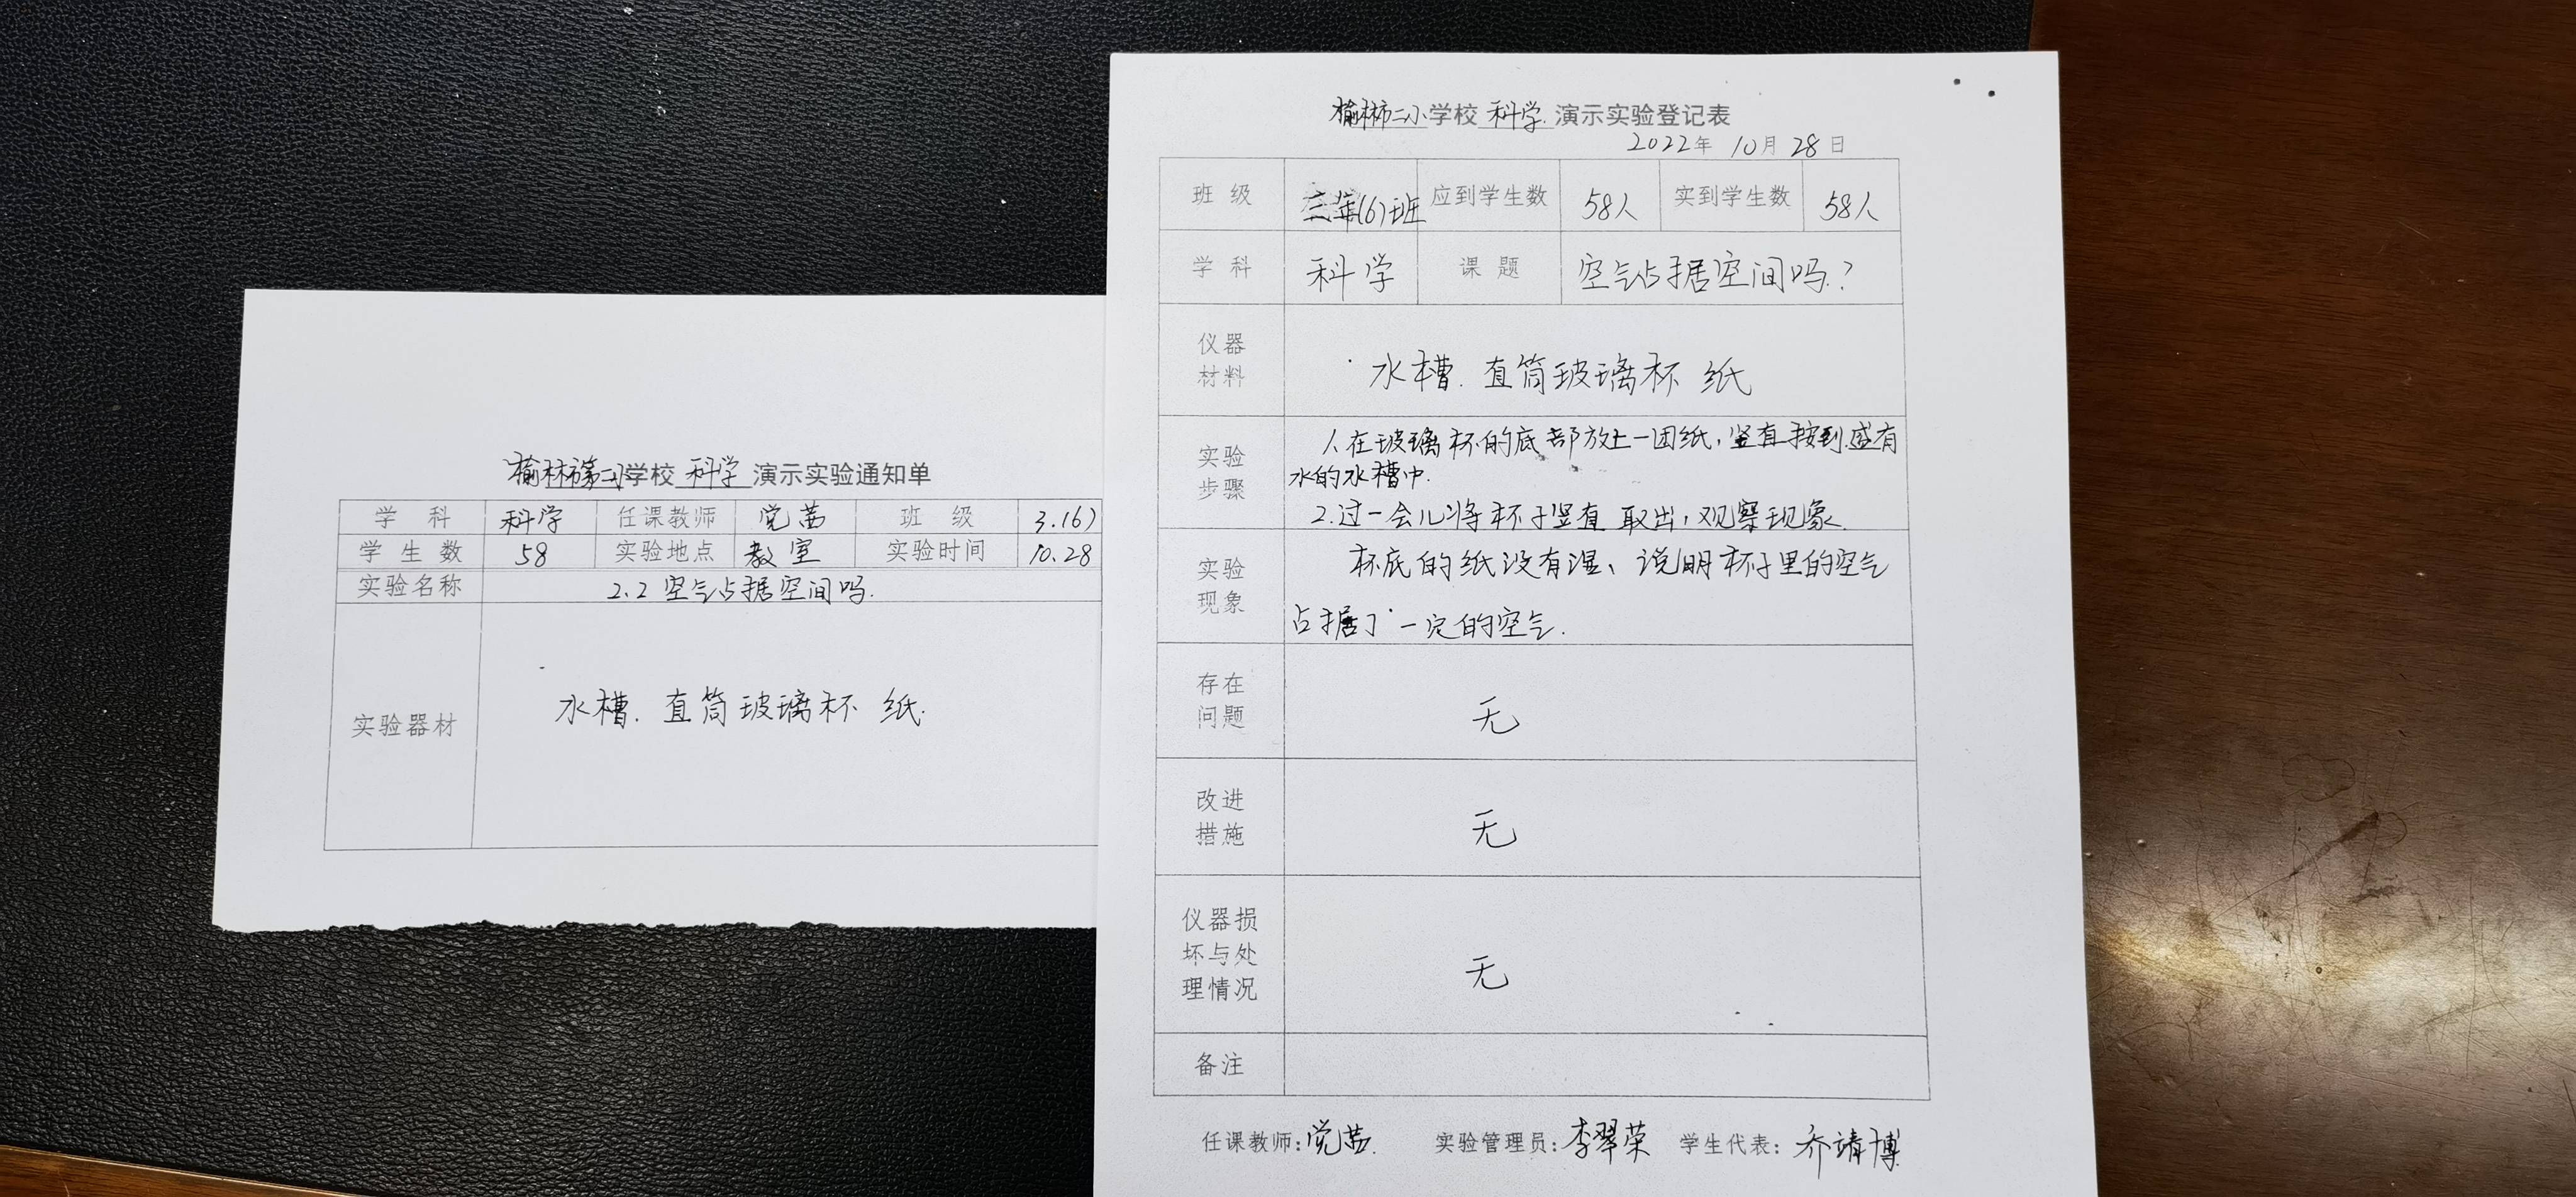 榆林市第二小学校 科学 演示实验通知单
学科 科学 任课教师 党茜 班级 3.(6)
学生数 58 实验地点 教室 实验时间 10.28
实验名称 2.2 空气占据空间吗.
实验器材 水槽. 直筒玻璃杯 纸.
榆林市二小学校 科学 演示实验登记表
2022年 10月 28日
班级 三年(6)班 应到学生数 58人 实到学生数 58人
学科 科学 课题 空气占据空间吗?
仪器
材料
水槽. 直筒玻璃杯 纸
实验
步骤
1.在玻璃杯的底部放上一团纸,竖直按到盛有
水的水槽中.
2.过一会儿将杯子竖直取出,观察现象.
实验
现象
杯底的纸没有湿、说明杯子里的空气
占据了一定的空气.
存在
问题
无
改进
措施
无
仪器损
坏与处
理情况
无
备注
任课教师:党茜. 实验管理员:李翠荣 学生代表:乔靖博